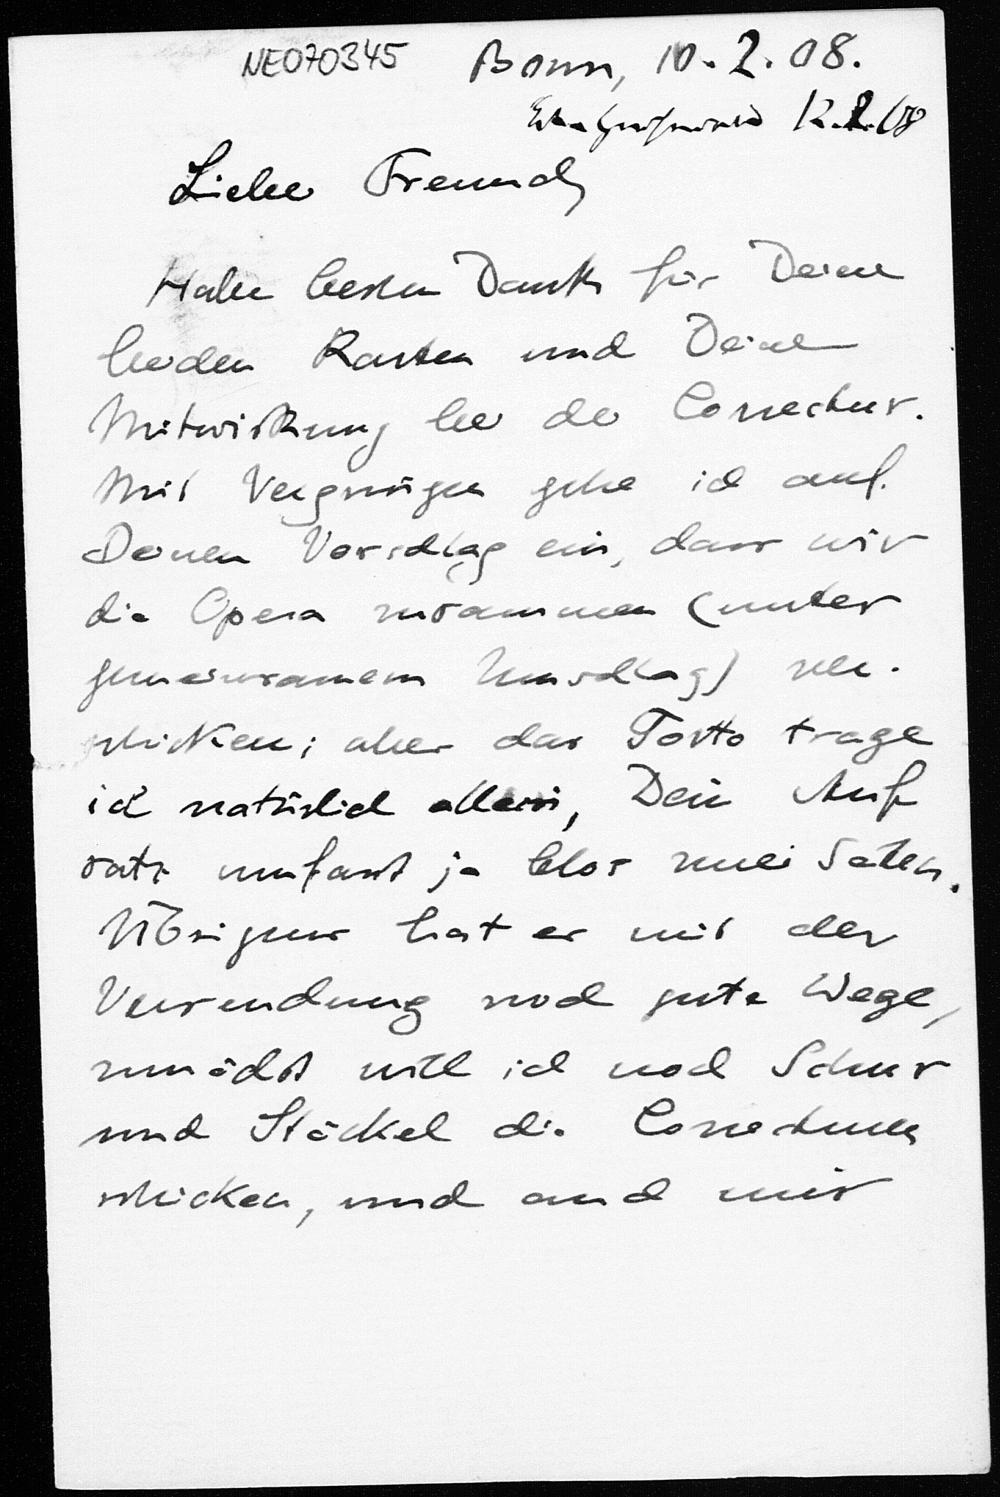 NE070345 Bonn, 10.2.08.
12.2.08
Lieber Freund,
Habe besten Dank für Deine
beiden Karten und Deine
Mitwirkung bei der Correctur.
Mit Vergnügen gehe ich auf
Deinen Vorschlag ein, dass wir
die Opera zusammen (unter
gemeinsamem Umschlag) ver-
schicken; aber das Porto trage
ich natürlich allein, Dein Auf
satz umfasst ja blos zwei Seiten.
Übrigens hat es mit der
Versendung noch gute Wege,
zunächst will ich noch Schur
und Stäckel die Correcturen
schicken, und auch mir